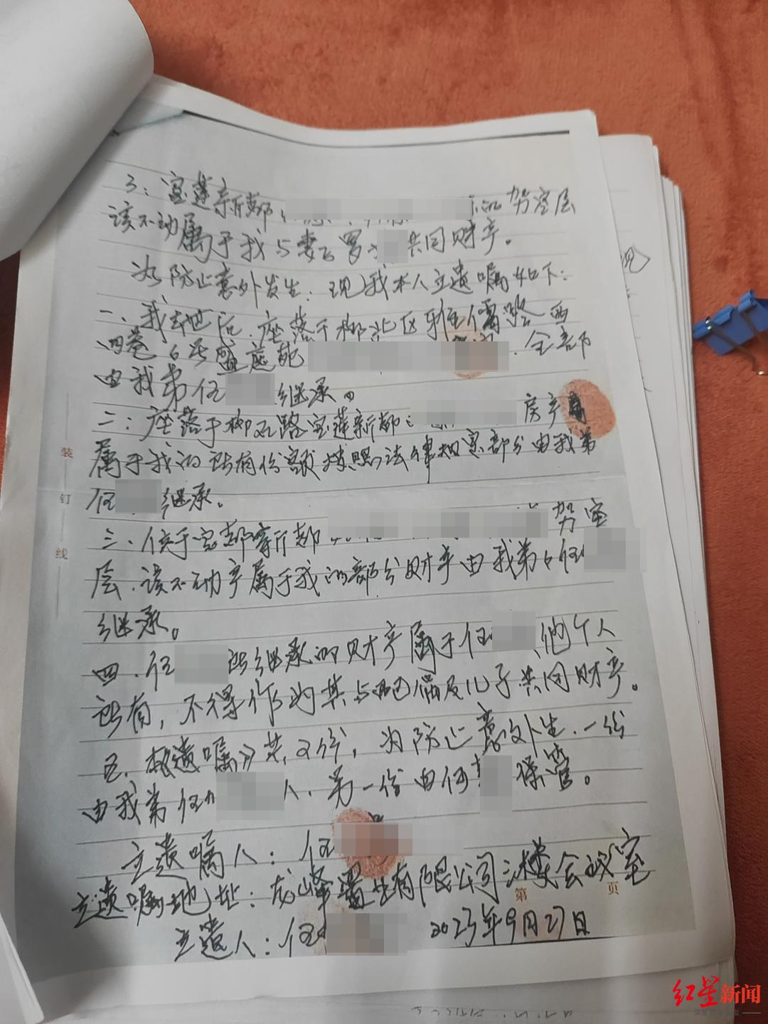 3：宝莲新都 驾空层
该不动属于我与妻子罗 共同财产。
为防止意外发生：现我本人立遗嘱如下：
一、我去地后，座落于柳北区雅儒路西
四巷6号 全部
由我弟任 继承。
二：座落于柳石路宝莲新都 房产
属于我的所有份额按照法律规定部分由我弟
任 继承。
三、位于宝都新都 驾空
层.该不动产属于我的部分财产由我弟 任
继承。
四.任 所继承的财产属于任 他个人
所有，不得作为其与配偶及儿子共同财产。
五.本遗嘱 共 份，为防止意外 生.一份
由我弟任 人.另一份由何 保管。
立遗嘱人：任
立遗嘱地址：龙峰置业有限公司三楼会议室
立遗人：任 2023年9月27日
装
订
线
第 页
红星新闻